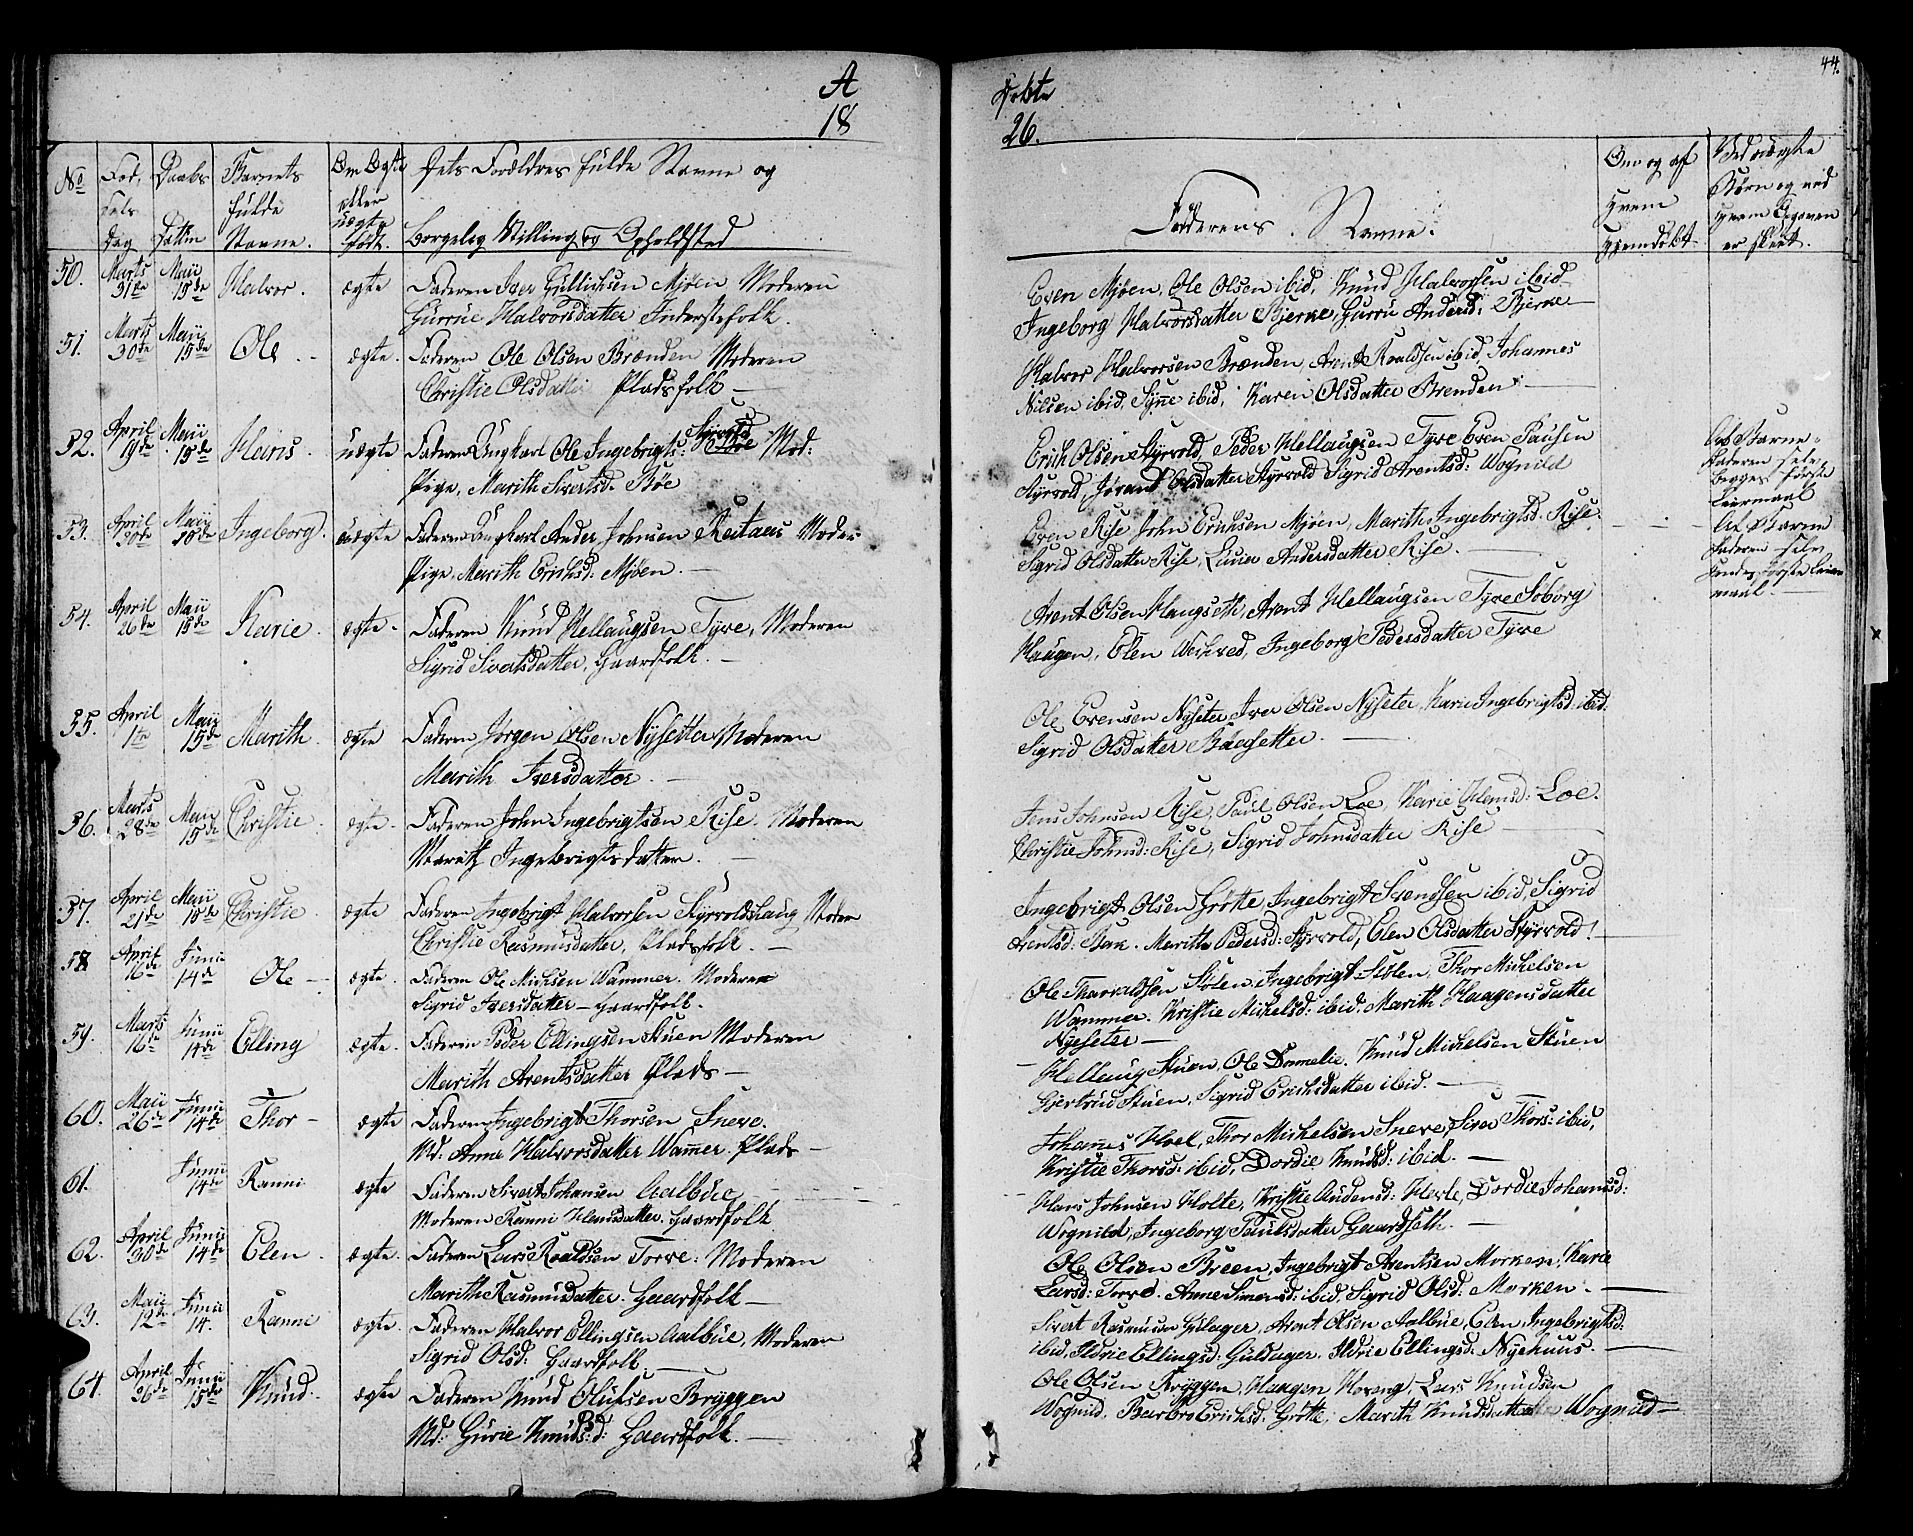 A
18
Døbte
26.
44.
No
Fød,
sels
Dag
Daabs
Datum
Barnets
fulde
Navne.
Om Ægte
eller
uægte
født.
Dets Forældres fulde Navne og
Borgelig Stilling og Opholdsted
Fadderens Navne.
Om og af
Hvem
Hjemdøbt
Ved uægte
Børn og ved
Hvem
er skeet.
50. Marts 31te Maii 15de Halvor. ægte Faderen Iver Gullichsen Mjøen Moderen
Gurrue Halvorsdatter Inderstefolk.
Even Mjøen, Ole Olsen ibid, Knud Halvorsen ibid
Ingeborg Halvorsdatter Bjerke, Gurru Andersd: Bjerke
51. Marts 30te Maii 15de Ole ægte. Faderen Ole Olsen Brænden Moderen
Christie Olsdatter Pladsfolk
Halvor Halvorsen Brænden, Arent Roaldsen ibid, Johannes
Nilsen ibid, Synne ibid, Karen Olsdatter Brenden
52. April 19de Maii 15de uægte Faderen Ungkarl Ole Ingebrigts: Styrvold Mod:
Pige, Marith Sivertsd. Bøe
Erich Olsen Styrvold, Peder Hellaugsen Tyve Even Paulsen
Styrvold, Jørand Olsdatter Styrvold Sigrid Arentsd: Wognild
Faderen selv,
begges første
Leiermaal
53. April 30te Maii 15de Ingeborg. uægte Faderen Ungkarl Ander Johnsen Reitaas Moder
Pige, Marith Erichsd: Mjøen.
Even Rise John Erichsen Mjøen, Marith Ingebrigtsd: Rise.
Sigrid Olsdatter Rise, Andersdatter Rise.
Af Barne
faderen selv
første Leier
maal.
54. April 26de Maii 15de Karie. ægte. Faderen Knud Hellaugsen Tyve, Moderen
Sigrid Sivertsdatter, Gaardfolk.
Arent Olsen Haugseth, Arent Hellaugsen Tyve Søborg
Haugen, Olen Ingeborg Pedersdatter Tyve
55. April 1te Maii 15de Marith. ægte Faderen Jørgen Olsen Nysetter Moderen
Marith Iversdatter.
Ole Evensen Nyseter Iver Olsen Nyseter, Karie Ingebrigtsd: ibid:
Sigrid Olsdatter
56. Marts 28de Maii 15de Christie. ægte. Faderen John Ingebrigtsen Rise. Moderen
Marith Ingebrigtsdatter.
Jens Johnsen Rise, Paul Olsen Loe, Karie Loe.
Christie Johnsd: Rise, Sigrid Johnsdatter Rise
57. April 21de Maii 15de Christie. ægte Faderen Ingebrigt Halvorsen Styrvoldshaug Moder
Christie Rasmusdatter, Pladsfolk.
Ingebrigt Olsen Grøtte, Ingebrigt Svendsen ibid, Sigrid
Arentsd: Marith Pedersd: Styrvold, Elen Olsdatter Styrvold!
58 April 16de Junii 14de Ole ægte. Faderen Ole Michsen Wammer. Moderen
Sigrid Iversdatter Gaardfolk.
Ole Thoraldsen Stølen, Ingebrigt Stølen, Thor Michelsen
Wammer. Kristie Michelsd: ibid. Marith Haagensdatter
Nyeseter
59. Marts 16de Junii 14de Elling ægte. Faderen Peder Ellingsen Stuen Moderen
Marith Arentsdatter Plads
Hellaug Stuen, Ole Donnelie. Knud Michelsen Stuen
Gjertrud Stuen, Sigrid Erichsdatter ibid.
60. Maii 26de Junii 14de Thor ægte Faderen Ingebrigt Thorsen Sneve.
Md. Anne Halvorsdatter Wamer. Plads
Johannes Hoel, Thor Michelsen Sneve, Siver Thors: ibid,
Kristie Thorsd: ibid, Dordie Knudsd: ibid.
61. Junii 14de Ranni ægte Faderen Sivert Johansen Aalbue,
Moderen Ranni Gaardfolk
Hans Johnsen Holte, Kristie Andersd: Dordie Johansd:
Wognild, Ingeborg Paulsdatter Gaardfolk.
62. April 30te Junii 14de Elen. ægte. Faderen Lars Roaldsen Torve. Moderen
Marith Rasmusdatter. Gaardfolk
Ole Olsen Breen, Ingebrigt Arentsen Morken, Karie
Larsd: Torve. Anne Simensd: ibid, Sigrid Olsd: Morken.
63. Maii 12te Junii 14. Ranni ægte. Faderen Halvor Ellingsen Aalbue, Moderen
Sigrid Olsd: Gaardfolk.
Sivert Rasmusen Arent Olsen Aalbue, Elen Ingebrigtsd:
ibid, Ildrie Ellingsd: Guldager. Ildrie Ellingsd: Nyehuus.
64. April 26de Junii 15de Knud. ægte Faderen Knud Olufsen Bryggen
Md: Gurie Knudsd: Gaardfolk.
Ole Olsen Bryggen, Haagen Lars Knudsen
Wognild, Barbro Erichsd: Grøtte, Marith Knudsdatter Wognild